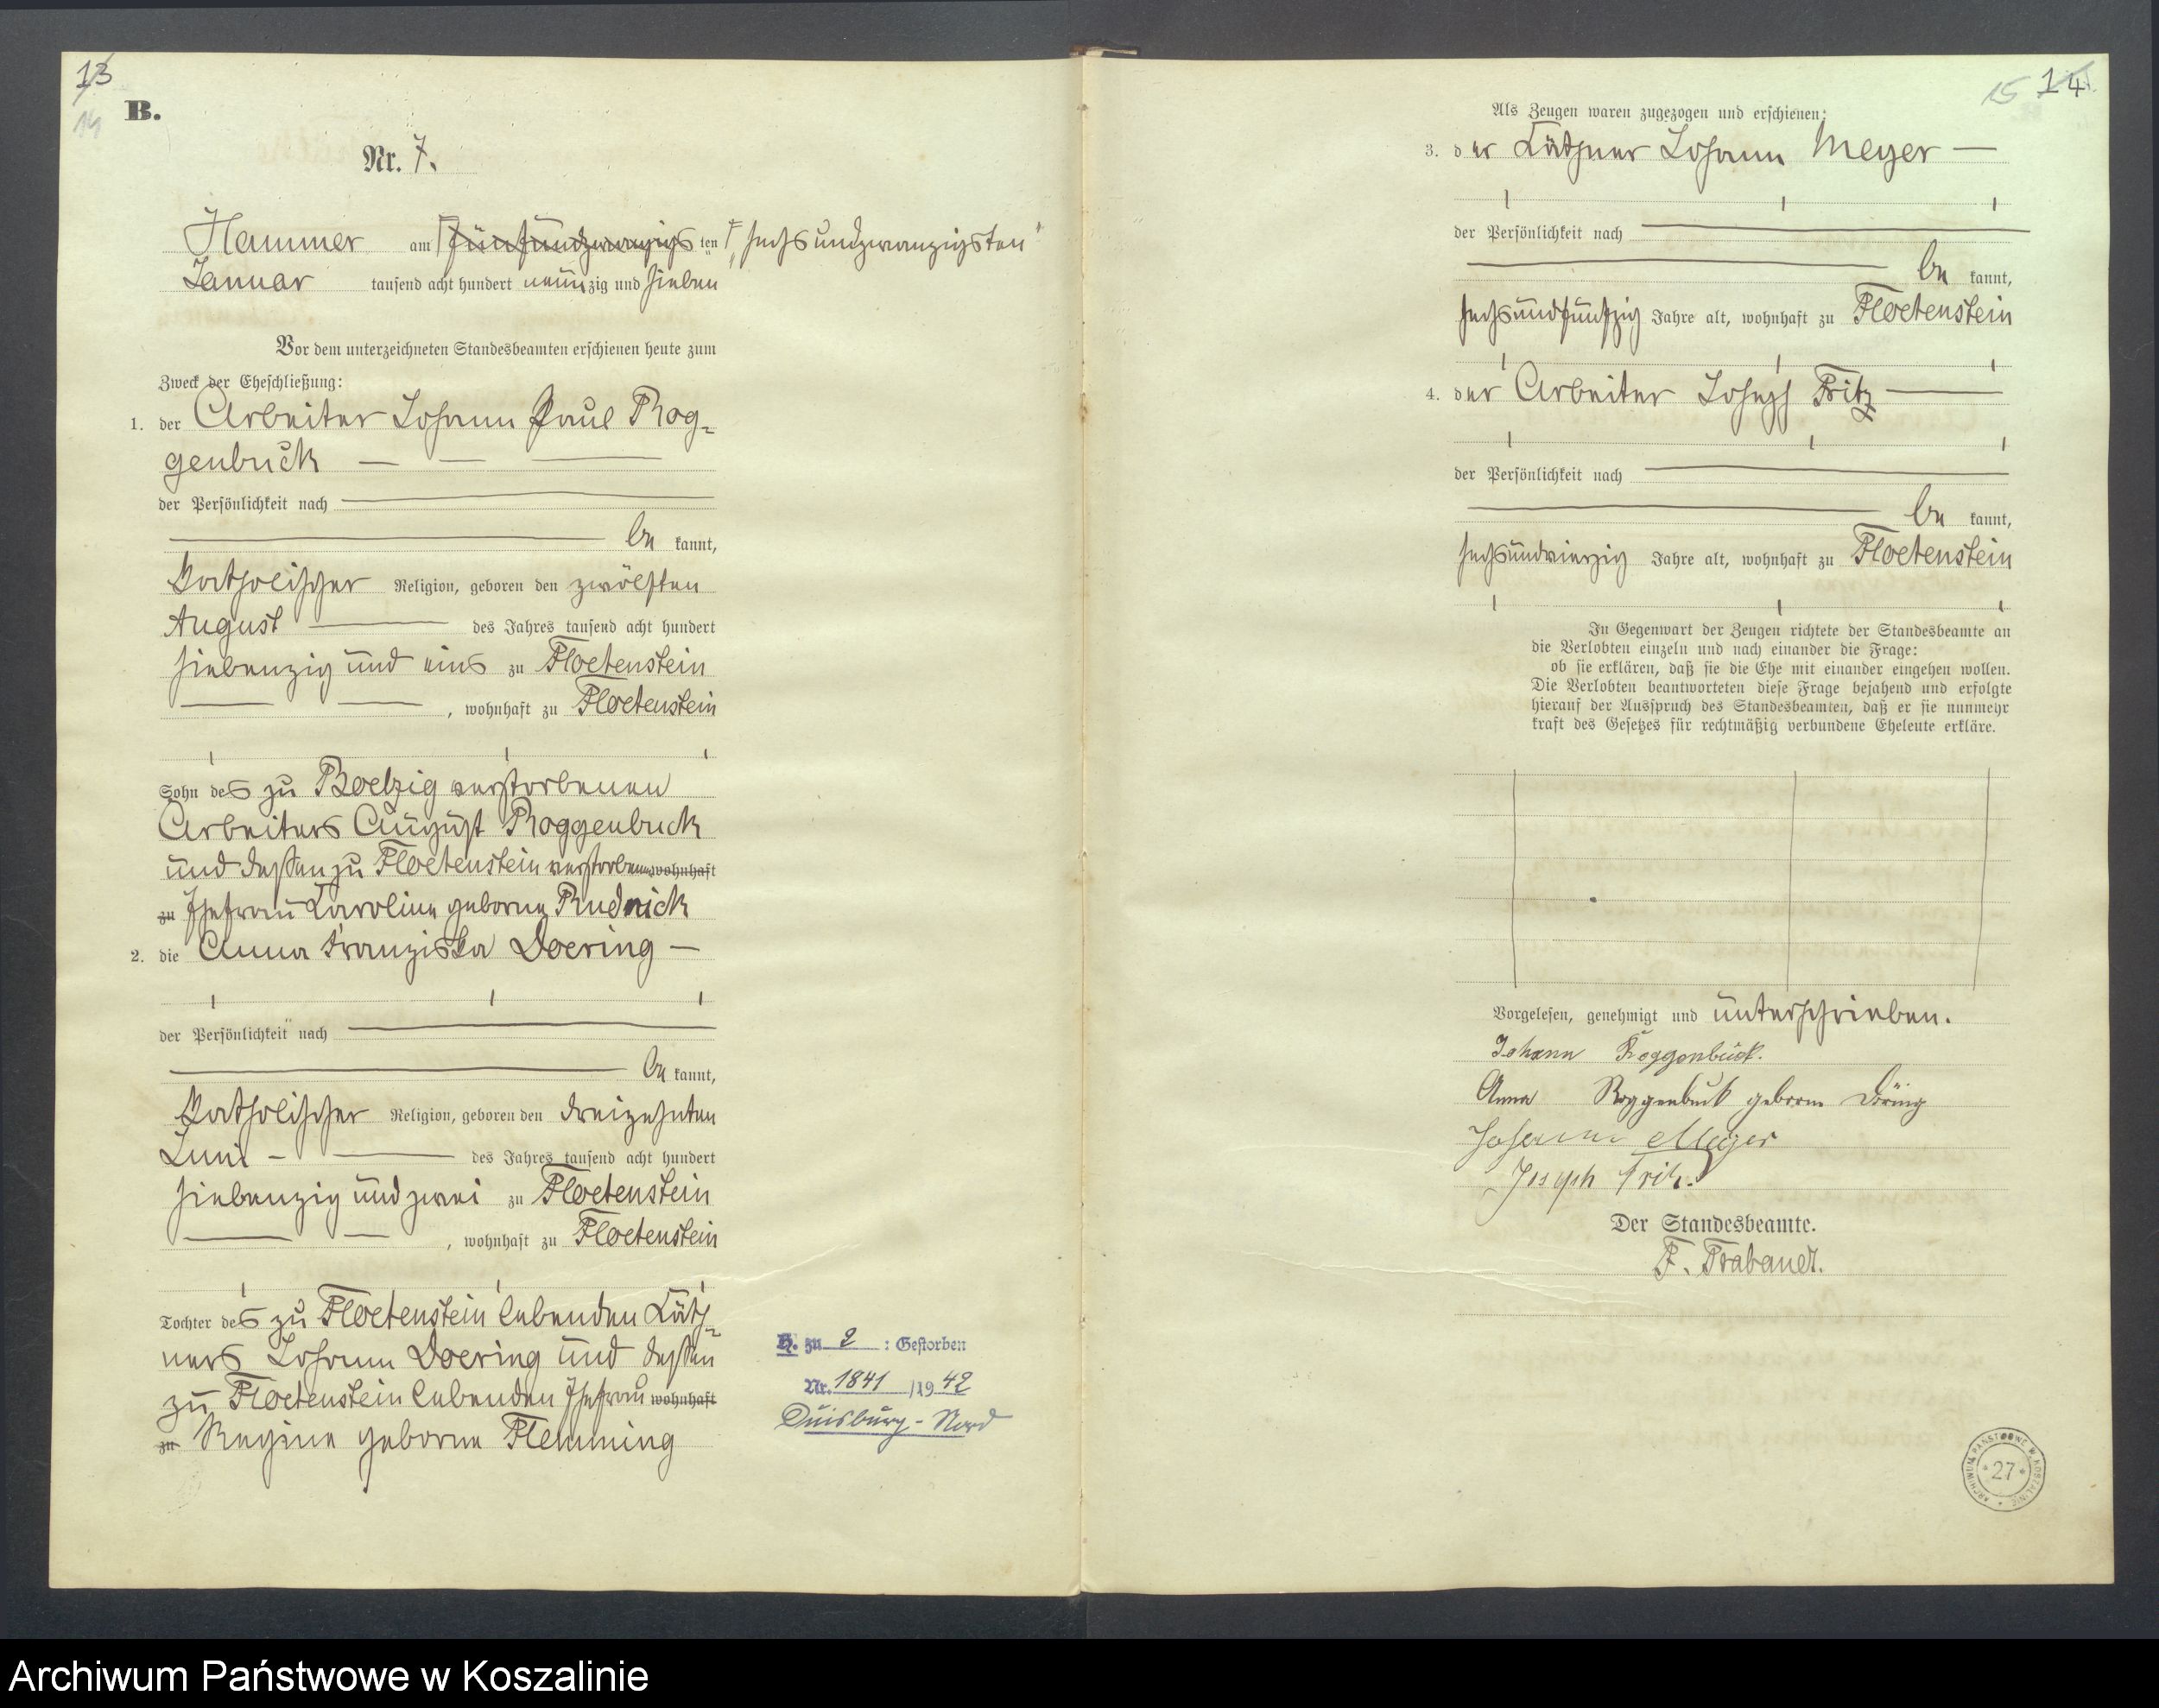 13
14
B.
Nr. 7.
Hammer am fünfundzwanzigsten "sechsundzwanzigsten"
Januar tausend acht hundert neunzig und sieben
Vor dem unterzeichneten Standesbeamten erschienen heute zum
Zweck der Eheschließung:
1. der Arbeiter Johann Paul Rog-
genbuck
der Persönlichkeit nach
be kannt,
katholischer Religion, geboren den zwölften
August des Jahres tausend acht hundert
siebenzig und eins zu Floetenstein
, wohnhaft zu Floetenstein
Sohn des zu Boelzig verstorbenen
Arbeiters August Roggenbuck
und dessen zu Floetenstein verstorbenen wohnhaft
zu Ehefrau Karoline geborne Rudnick
2. die Anna Franziska Doering
der Persönlichkeit nach
be kannt,
katholischer Religion, geboren den dreizehnten
Juni des Jahres tausend acht hundert
siebenzig und zwei zu Floetenstein
, wohnhaft zu Floetenstein
Tochter des zu Floetenstein lebenden Käth-
ners Johann Doering und dessen
zu Floetenstein lebenden Ehefrau wohnhaft
zu Regine geborne Flemming
H. zu 2 : Gestorben
Nr. 1841 /19 42
Duisburg-Nord
15 14
Als Zeugen waren zugezogen und erschienen:
3. der Käthner Johann Meyer
der Persönlichkeit nach
be kannt,
sechsundfünfzig Jahre alt, wohnhaft zu Floetenstein
4. der Arbeiter Joseph Fritz
der Persönlichkeit nach
be kannt,
sechsundvierzig Jahre alt, wohnhaft zu Floetenstein
In Gegenwart der Zeugen richtete der Standesbeamte an
die Verlobten einzeln und nach einander die Frage:
ob sie erklären, daß sie die Ehe mit einander eingehen wollen.
Die Verlobten beantworteten diese Frage bejahend und erfolgte
hierauf der Ausspruch des Standesbeamten, daß er sie nunmehr
kraft des Gesetzes für rechtmäßig verbundene Eheleute erkläre.
Vorgelesen, genehmigt und unterschrieben.
Johann Roggenbuck.
Anna Roggenbuck geborne Döring
Johann Meyer
Joseph Fritz.
Der Standesbeamte.
F. Trabandt.
ARCHIWUM PAŃSTWOWE W KOSZALINIE
* 27 *
Archiwum Państwowe w Koszalinie